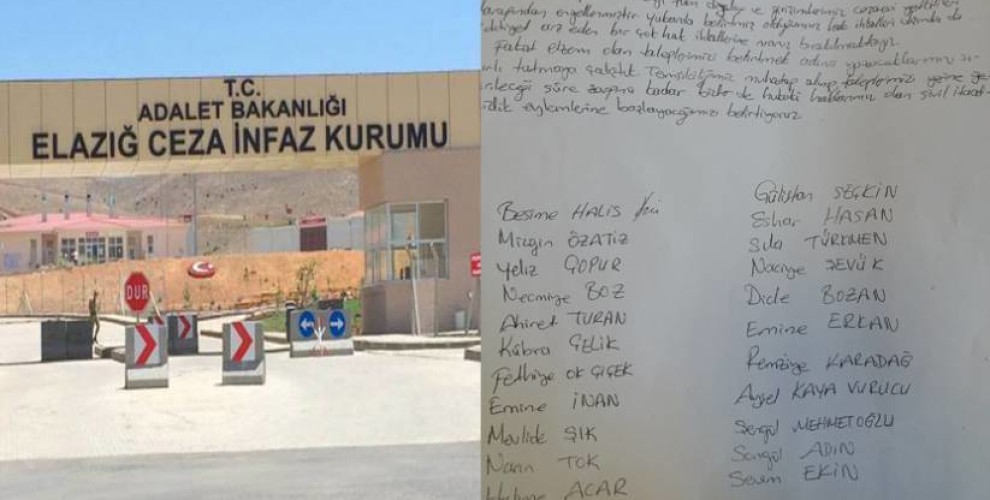 T.C.
ADALET BAKANLIĞI
ELAZIĞ CEZA İNFAZ KURUMU
DUR
tüm ve cezaevi
tarafından engellenmiştir yukarıda belirtmiş olduğumuz hak ihlalleri
arz eden bir çok hak ihlallerine maruz bırakılmaktayız.
Fakat elzem olan taleplerimizi belirtmek adına
tutmaya çalıştık. muhatap alınıp taleplerimizi yerine
süre zarfına kadar bizler de hukuki haklarımız olan sivil
eylemlerine başlayacağımızı belirtiyoruz
Besime HALİS
Mizgin ÖZATİZ
Yeliz ÇOPUR
Necmiye BOZ
Ahiret TURAN
Kübra ÇELİK
Fethiye OK ÇİÇEK
Emine İNAN
Mevlide ŞIK
Narin TOK
ACAR
Gülistan SEÇKİN
Eshar HASAN
Sıla TÜRKMEN
Naciye
Dicle BOZAN
Emine ERKAN
Remziye KARADAĞ
Aysel KAYA VURUCU
Sergül MEHMETOĞLU
Songül ADIN
Sevim EKİN